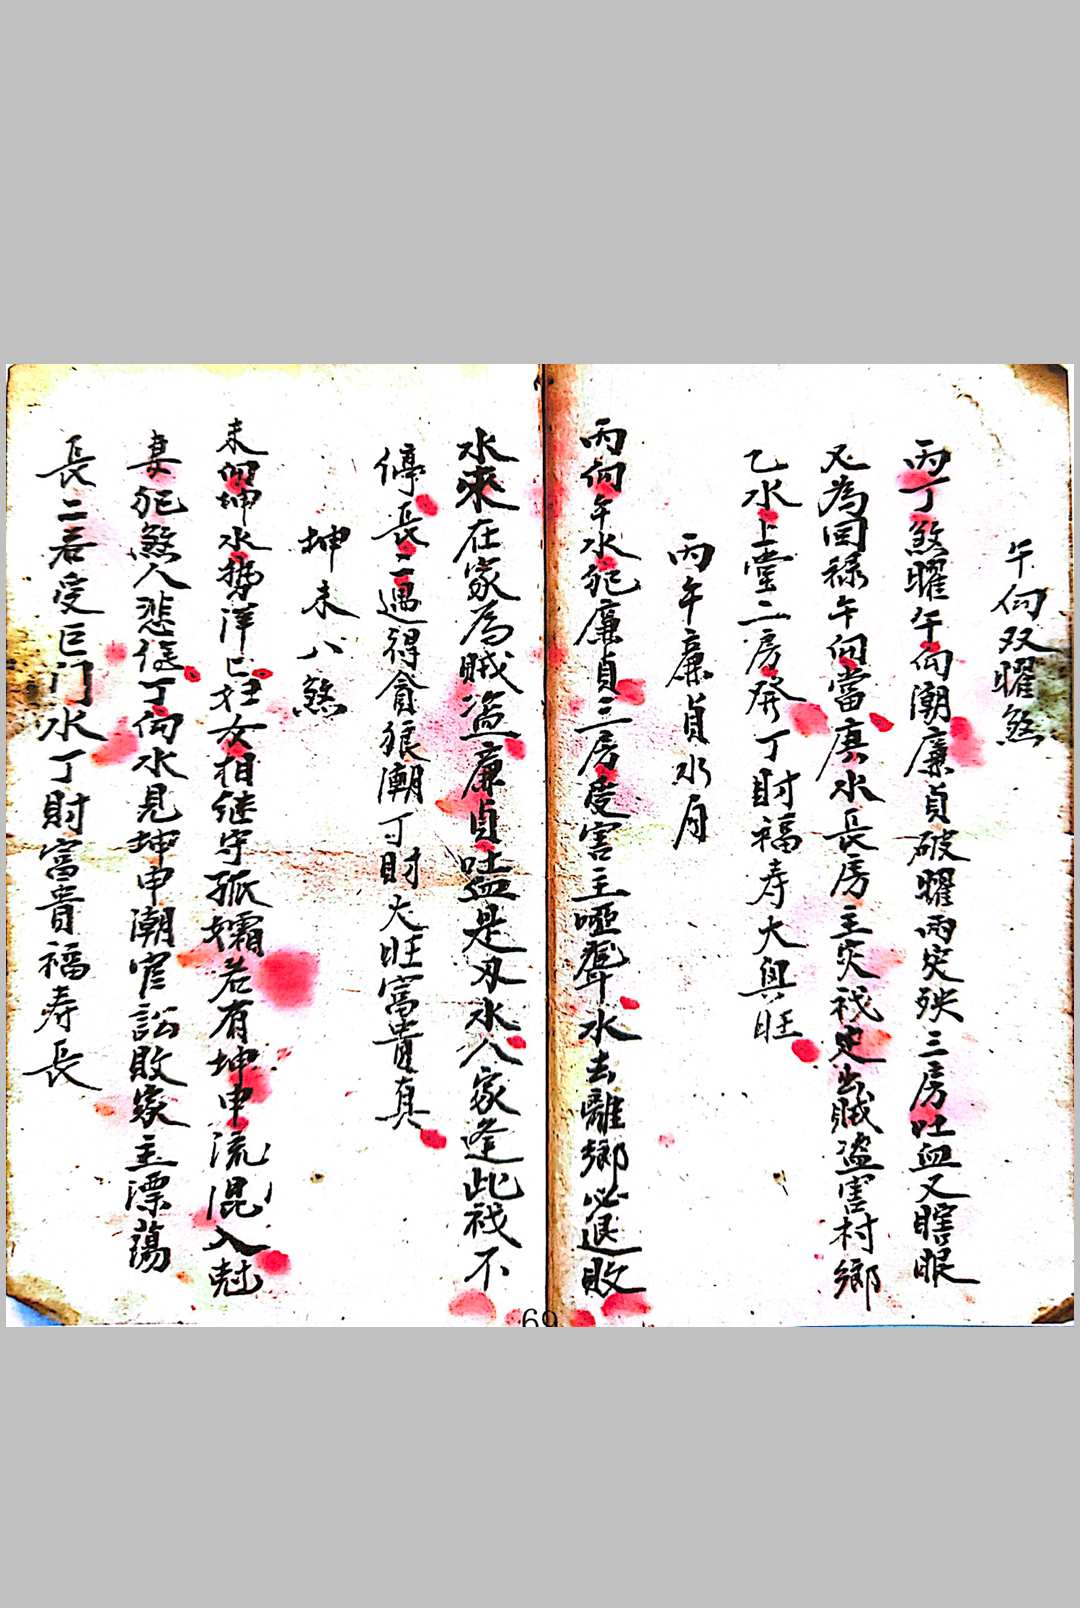 午向双曜煞
丙丁煞曜午向潮廉貞破曜兩灾殃三房吐血又瞎眼
又為回禄午向當庚水長房主灾秧更出賊盗害村鄉
乙水上堂二房発丁財福寿大興旺
丙午廉貞水局
丙向午水犯廉貞三房受害主啞聾水去離鄉必退敗
水來在家為賊盗廉貞吐血是刃水人家逢此祸不
停長二遇得貪狼潮丁財大旺富貴真
坤未八煞
未向坤水势洋亡妇女相继守孤孀若有坤申流混入尅
妻犯煞人悲傷丁向水見坤申潮官訟敗家主漂蕩
長二若受巨门水丁財富貴福寿長
69